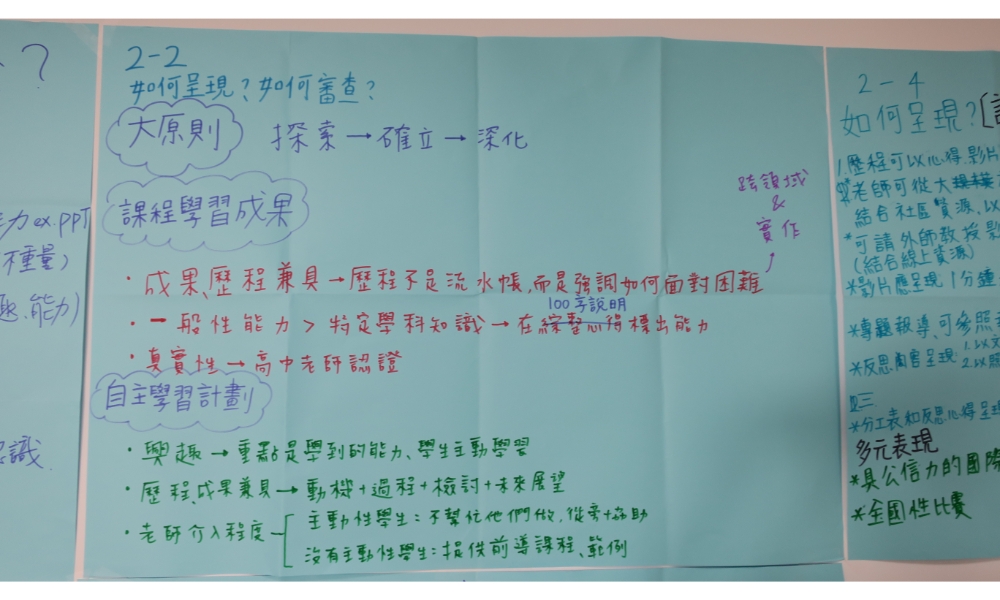 ?
力 ex.PPT
不重量)
能力)
認識
2-2
如何呈現?如何審查?
大原則 探索→確立→深化
課程學習成果
跨領域
&
實作
·成果、歷程兼具→歷程不是流水帳,而是強調如何面對困難
100字說明
·一般性能力>特定學科知識→在綜整心得標出能力
·真實性→高中老師認證
自主學習計劃
·興趣→重點是學到的能力、學生主動學習
·歷程、成果兼具→動機+過程+檢討+未來展望
·老師介入程度
主動性學生:不幫忙他們做,從旁+協助
沒有主動性學生:提供前導課程、範例
2-4
如何呈現?
1.歷程可以心得、影片
老師可從大
結合社區資源、以
*可請外師教授影
(結合線上資源)
*影片應呈現1分鐘
*專題報導、可參照
*反思內容呈現
*分工表和反思心得呈現
多元表現
*具公信力的國際
*全國性比賽